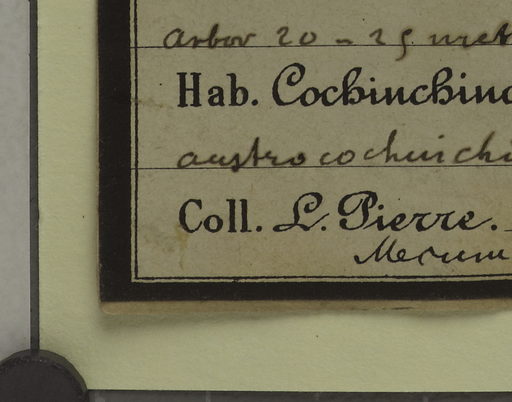 Arbor 20 - 25 met
Hab. Cochinchina
austro cochinchi
Coll. L. Pierre.